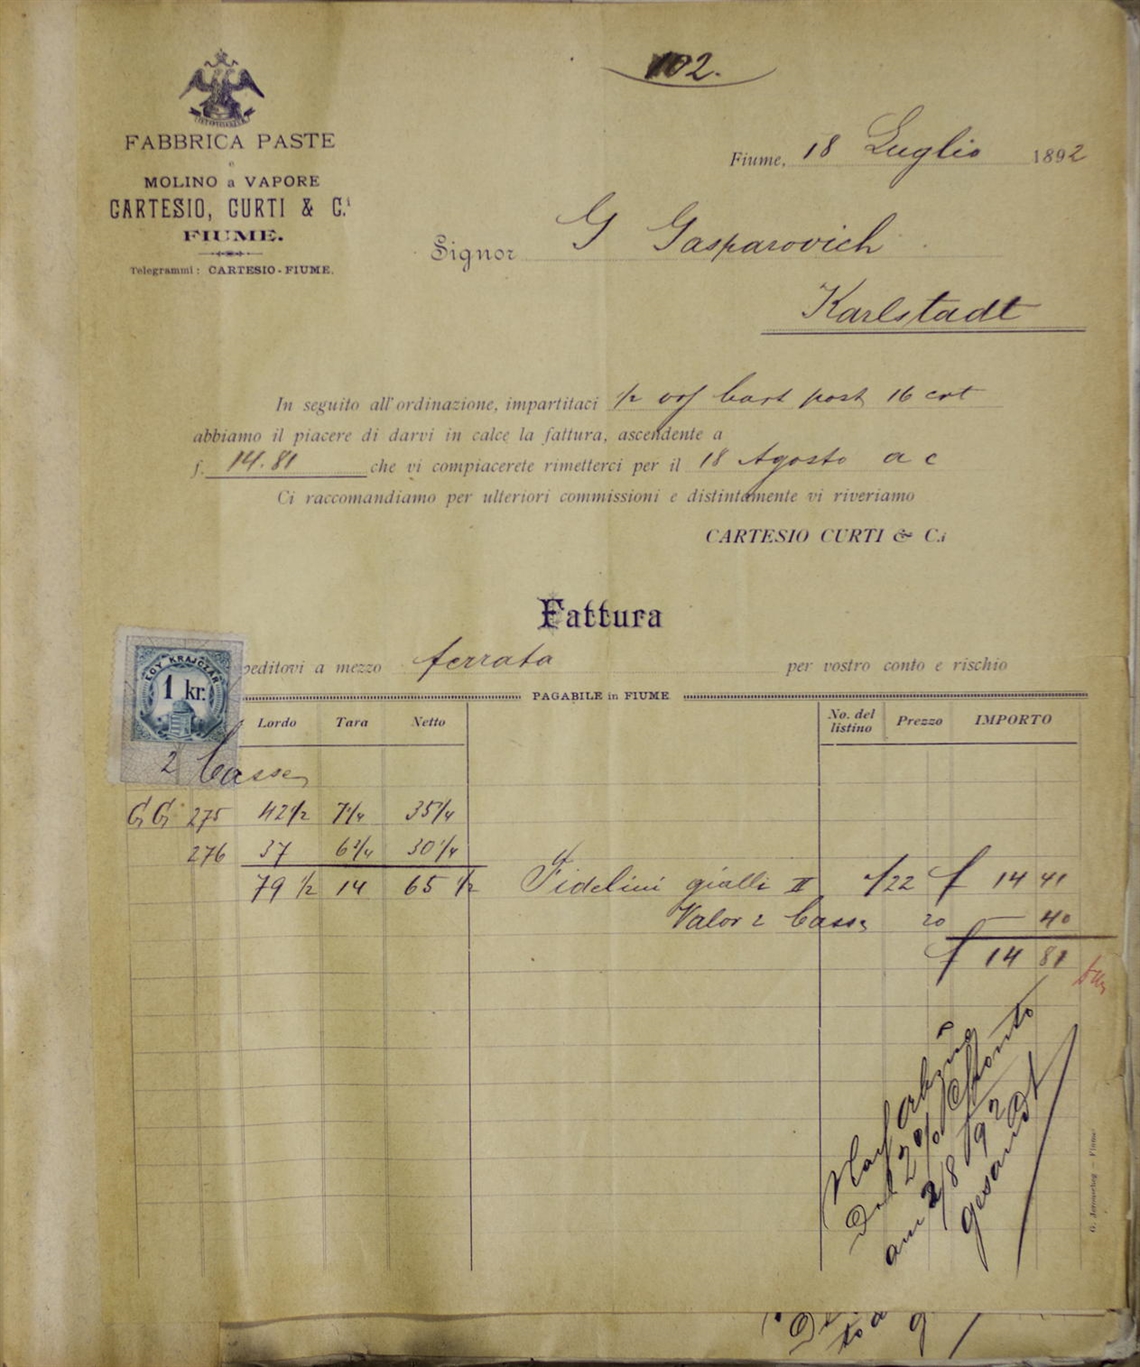 102.
FABBRICA PASTE
e
MOLINO a VAPORE
CARTESIO, CURTI & C.i
FIUME.
Telegrammi: CARTESIO-FIUME.
Fiume, 18 Luglio 1892
Signor G Gasparovich
Karlstadt
In seguito all'ordinazione, impartitaci post 16 crt
abbiamo il piacere di darvi in calce la fattura, ascendente a
f. 14.81 che vi compiacerete rimetterci per il 18 Agosto a c
Ci raccomandiamo per ulteriori commissioni e distintamente vi riveriamo
CARTESIO CURTI & C.i
Fattura
EGY KRAJCZÁR
1 kr.
peditovi a mezzo ferrata per vostro conto e rischio
PAGABILE in FIUME
Lordo Tara Netto No. del listino Prezzo IMPORTO
2 Casse
GG 275 42 1/2 7 1/4 35 1/4
276 37 6 3/4 30 1/4
79 1/2 14 65 1/2 Fidelini gialli II f 22 f 14 41
Valor 2 Casse 20 — 40
f 14 81
2% Sconto
am 2/8 92
gesandt
G. Jeroušchag — Fiume